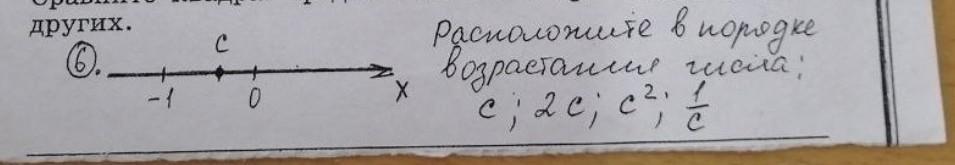 других.
6. c -1 0 x
Расположите в порядке
возрастания числа:
c; 2c; c²; 1/c